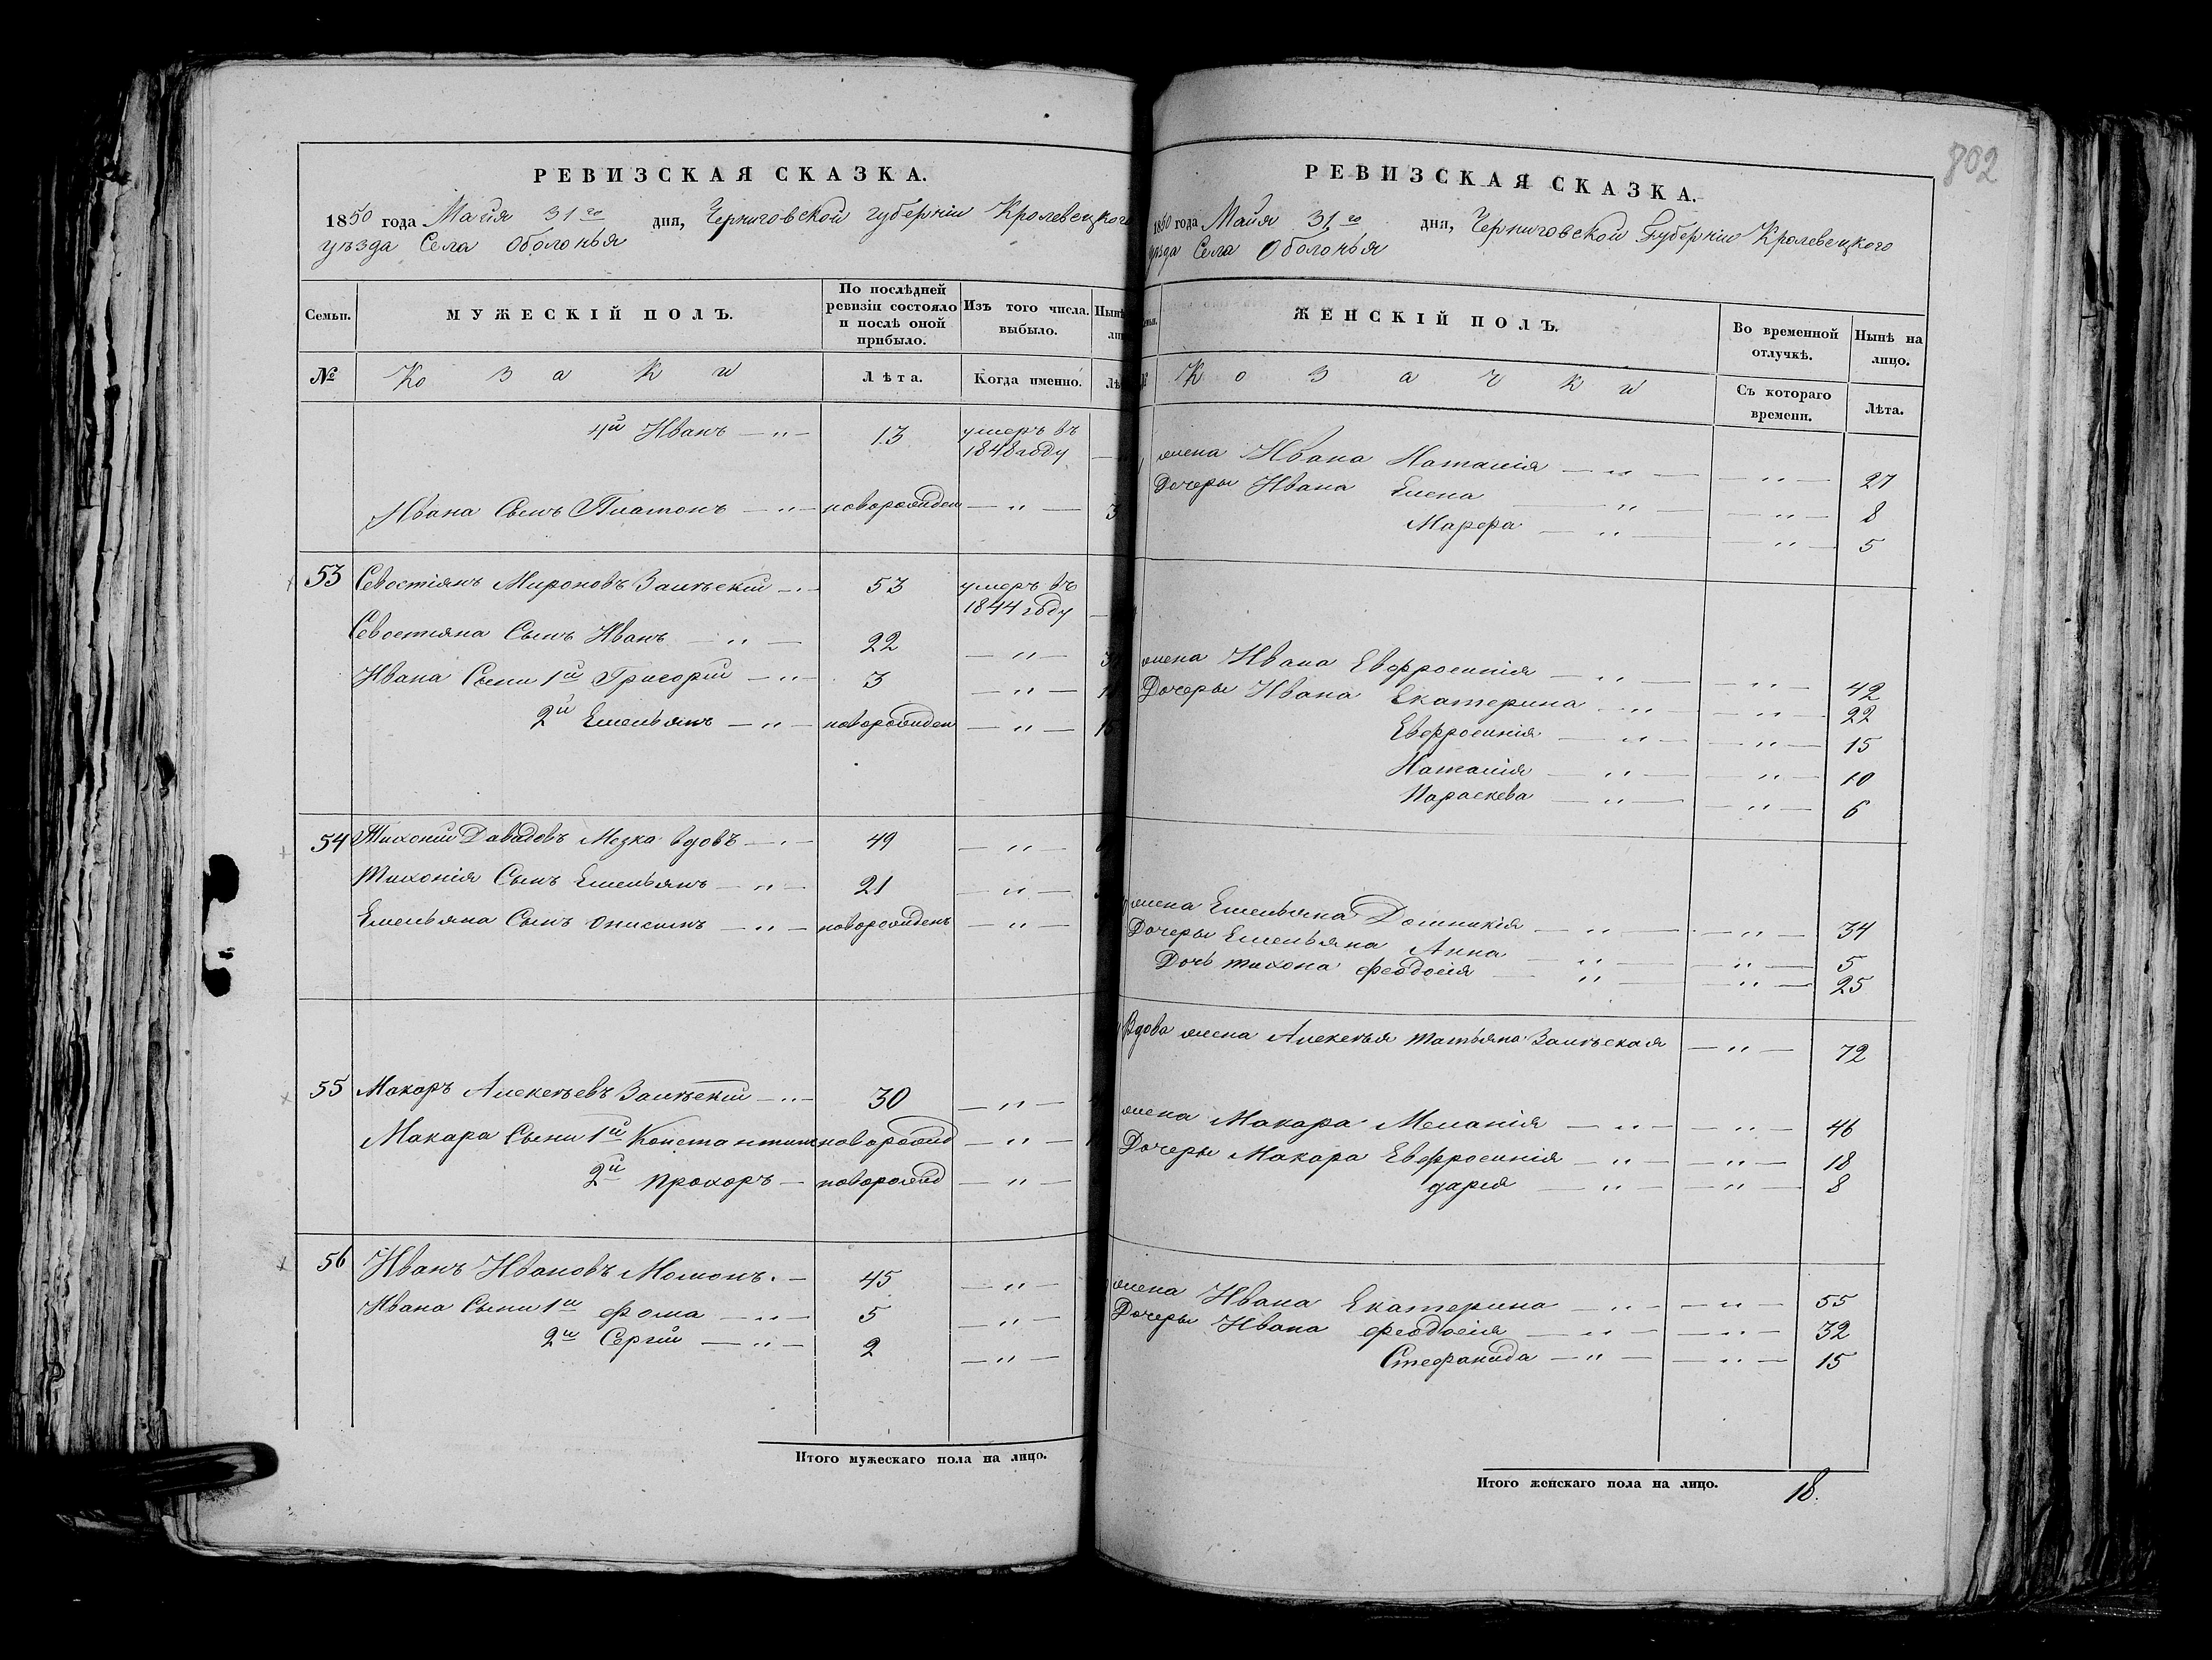 РЕВИЗСКАЯ СКАЗКА.
1850 года Майя 31го дня, Черниговской губернiи Кролевецкого
уѣзда Села Оболонья
Семьи.
МУЖЕСКIЙ ПОЛЪ.
По послѣдней ревизiи состояло и послѣ оной прибыло.
Изъ того числа выбыло.
№
Козаки
Лѣта.
Когда именно.
4й Иванъ — " — 13 умеръ въ
1848 году
Ивана Сынъ Платонъ — " — новорожден — " — 3
53 Севостiянъ Мироновъ Заикѣскiй — " — 53 умеръ въ
1844 году
Севостияна Сынъ Иванъ — " — 22 — " —
Ивана Сыни 1й Григорiй — " — 3 — " —
2й Емельянъ — " — новорожден — " —
54 Тихонiй Давидовъ Мезка вдовъ — " — 49 — " —
Тихонiя Сынъ Емельянъ — " — 21 — " —
Емельяна Сынъ Онисимъ — " — новорожденъ — " —
55 Макаръ Алексѣевъ Заикѣскiй — " — 30 — " —
Макара Сыни 1й Константин новорожд — " —
2й Прохоръ — новорожд — " —
56 Иванъ Ивановъ Момонъ. — 45 — " —
Ивана Сыни 1й Фома — " — 5 — " —
2й Сергiй — " — 2 — " —
Итого мужескаго пола на лицо.
802
РЕВИЗСКАЯ СКАЗКА.
1850 года Майя 31го дня, Черниговской Губернiи Кролевецкого
уѣзда Села Оболонья
ЖЕНСКIЙ ПОЛЪ.
Во временной отлучкѣ.
Нынѣ на лицо.
Козачки
Съ котораго времени.
Лѣта.
жена Ивана Наталiя — " — — " — 27
Дочеры Ивана Елена — " — — " — 8
Марфа — " — — " — 5
жена Ивана Евфросинiя — " — — " — 42
Дочеры Ивана Екатерина — " — — " — 22
Евфросинiя — " — — " — 15
Наталiя — " — — " — 10
Параскева — " — — " — 6
жена Емельяна Домникiя — " — — " — 34
Дочеры Емельяна Анна — " — — " — 5
Дочь тихона феодосiя — " — — " — 25
Вдова жена Алексѣя татьяна Заикѣская — " — 72
жена Макара Меланiя — " — — " — 46
Дочеры Макара Евфросинiя — " — — " — 18
дарiя — " — — " — 8
жена Ивана Екатерина — " — — " — 55
Дочеры Ивана феодосiя — " — — " — 32
Стефанида — " — — " — 15
Итого женскаго пола на лицо. 18.